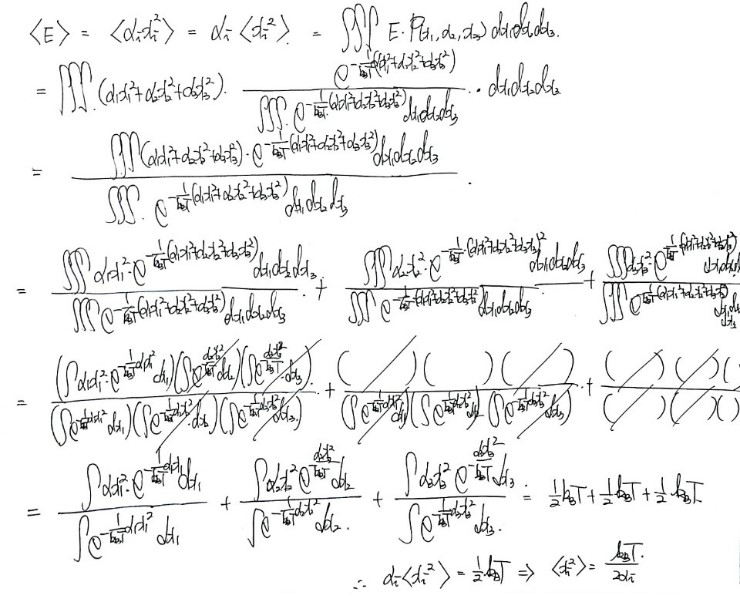 ⟨E⟩ = ⟨αᵢxᵢ²⟩ = αᵢ⟨xᵢ²⟩. = ∭ E · P(x₁, x₂, x₃) dx₁dx₂dx₃.
= ∭ (α₁x₁²+α₂x₂²+α₃x₃²) · \frac{e^{-\frac{1}{k_BT}(α₁x₁²+α₂x₂²+α₃x₃²)}}{∭ e^{-\frac{1}{k_BT}(α₁x₁²+α₂x₂²+α₃x₃²)} dx₁dx₂dx₃} · dx₁dx₂dx₃
= \frac{∭ (α₁x₁²+α₂x₂²+α₃x₃²) · e^{-\frac{1}{k_BT}(α₁x₁²+α₂x₂²+α₃x₃²)} dx₁dx₂dx₃}{∭ e^{-\frac{1}{k_BT}(α₁x₁²+α₂x₂²+α₃x₃²)} dx₁dx₂dx₃}.
= \frac{∭ α₁x₁² · e^{-\frac{1}{k_BT}(α₁x₁²+α₂x₂²+α₃x₃²)} dx₁dx₂dx₃}{∭ e^{-\frac{1}{k_BT}(α₁x₁²+α₂x₂²+α₃x₃²)} dx₁dx₂dx₃} + \frac{∭ α₂x₂² · e^{-\frac{1}{k_BT}(α₁x₁²+α₂x₂²+α₃x₃²)²} dx₁dx₂dx₃}{∭ e^{-\frac{1}{k_BT}(α₁x₁²+α₂x₂²+α₃x₃²)} dx₁dx₂dx₃} + \frac{∭ α₃x₃² · e^{-\frac{1}{k_BT}(α₁x₁²+α₂x₂²+α₃x₃²)} dx₁dx₂dx₃}{∭ e^{-\frac{1}{k_BT}(α₁x₁²+α₂x₂²+α₃x₃²)} dx₁dx₂dx₃}
= \frac{(∫ α₁x₁² · e^{-\frac{1}{k_BT}α₁x₁²} dx₁)(∫ e^{-\frac{α₂x₂²}{k_BT}} dx₂)(∫ e^{-\frac{α₃x₃²}{k_BT}} dx₃)}{(∫ e^{-\frac{1}{k_BT}α₁x₁²} dx₁)(∫ e^{-\frac{1}{k_BT}α₂x₂²} dx₂)(∫ e^{-\frac{1}{k_BT}α₃x₃²} dx₃)} + \frac{( )( )( )}{(∫ e^{-\frac{1}{k_BT}α₁x₁²} dx₁)(∫ e^{-\frac{1}{k_BT}α₂x₂²} dx₂)(∫ e^{-\frac{1}{k_BT}α₃x₃²} dx₃)} + \frac{( )( )(}{( )( )(}
= \frac{∫ α₁x₁² · e^{-\frac{1}{k_BT}α₁x₁²} dx₁}{∫ e^{-\frac{1}{k_BT}α₁x₁²} dx₁} + \frac{∫ α₂x₂² e^{-\frac{α₂x₂²}{k_BT}} dx₂}{∫ e^{-\frac{1}{k_BT}α₂x₂²} dx₂} + \frac{∫ α₃x₃² e^{-\frac{α₃x₃²}{k_BT}} dx₃}{∫ e^{-\frac{1}{k_BT}α₃x₃²} dx₃} = \frac{1}{2}k_BT + \frac{1}{2}k_BT + \frac{1}{2}k_BT
∴ αᵢ⟨xᵢ²⟩ = \frac{1}{2}k_BT ⇒ ⟨xᵢ²⟩ = \frac{k_BT}{2αᵢ}